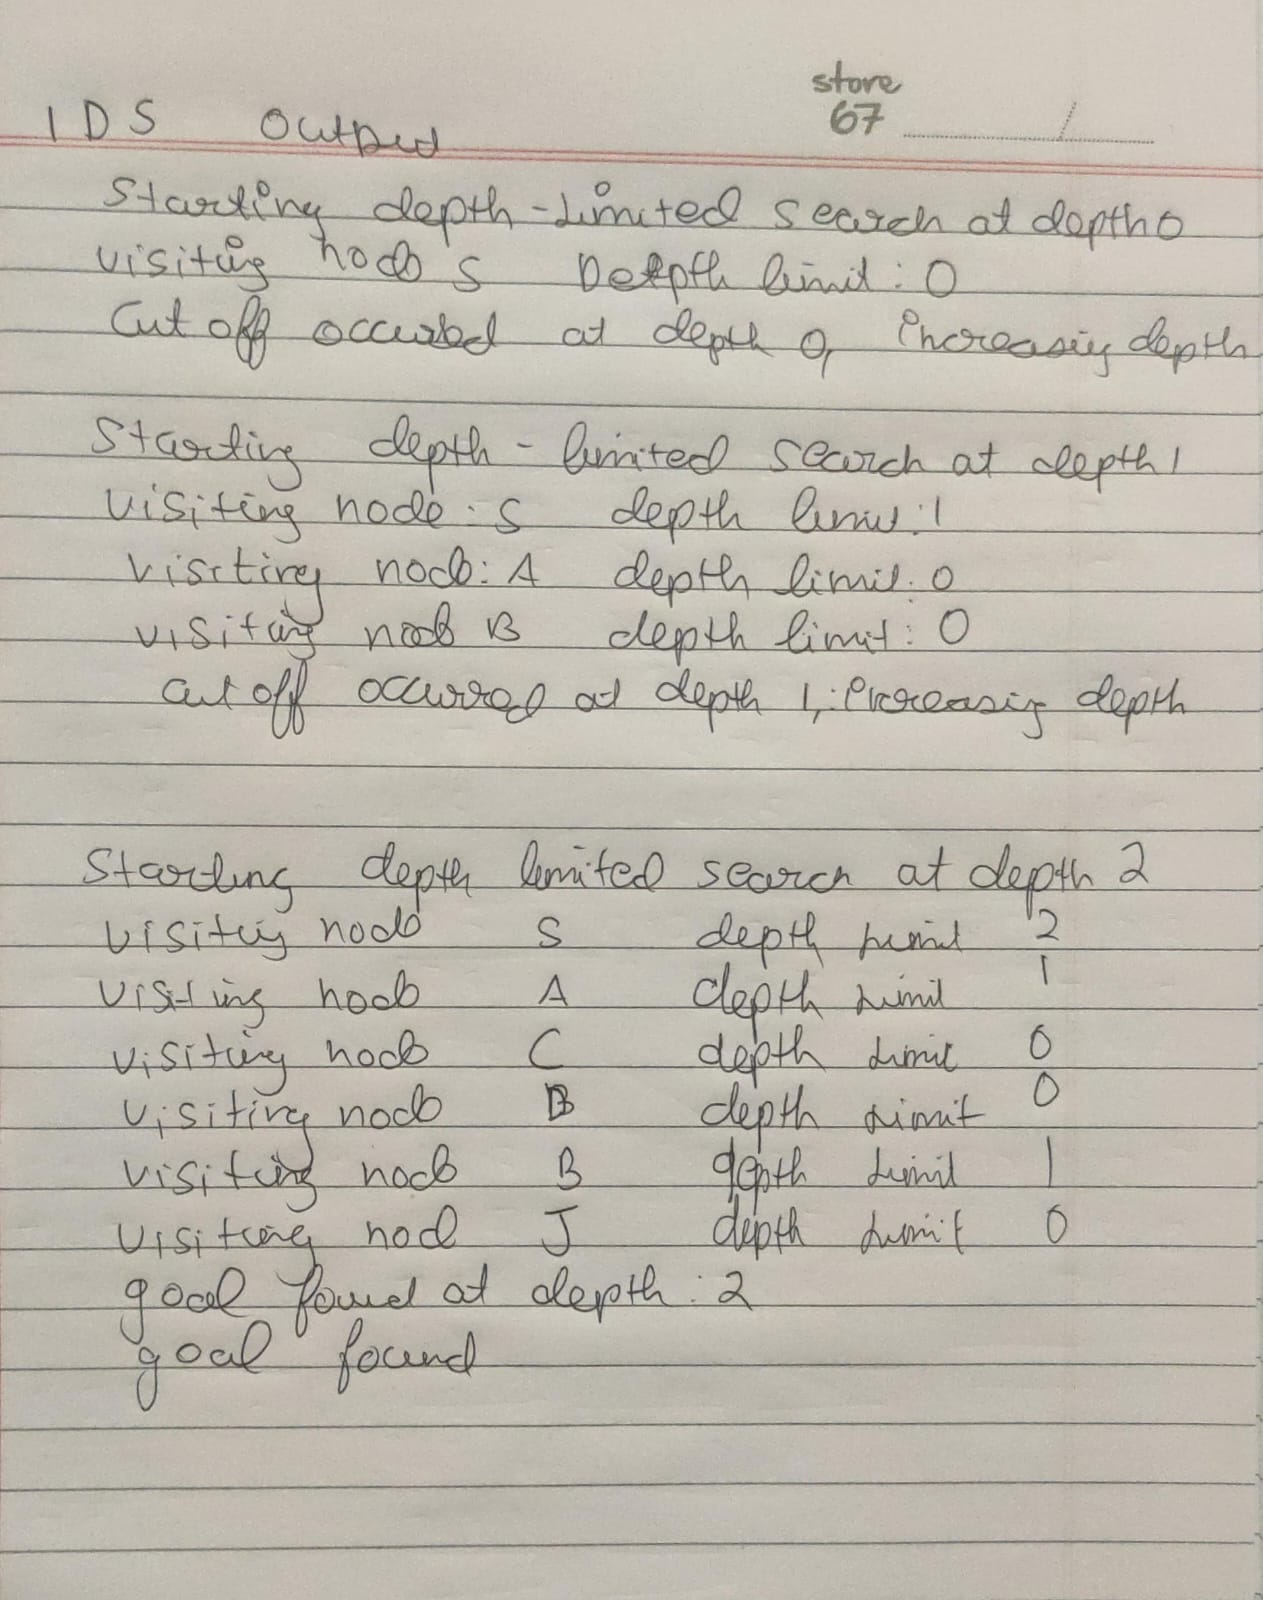 store
67
IDS Output
Starting depth-Limited search at depth 0
Visiting node S Depth limit: 0
Cut off occured at depth 0, increasing depth
Starting depth - limited search at depth 1
Visiting node: S depth limit: 1
Visiting node: A depth limit: 0
Visiting node B depth limit: 0
Cut off occurred at depth 1, increasing depth
Starting depth limited search at depth 2
Visiting node S depth limit 2
Visiting node A depth Limit 1
Visiting node C depth Limit 0
Visiting node B depth Limit 0
Visiting node B depth Limit 1
Visiting node J depth Limit 0
goal found at depth: 2
goal found